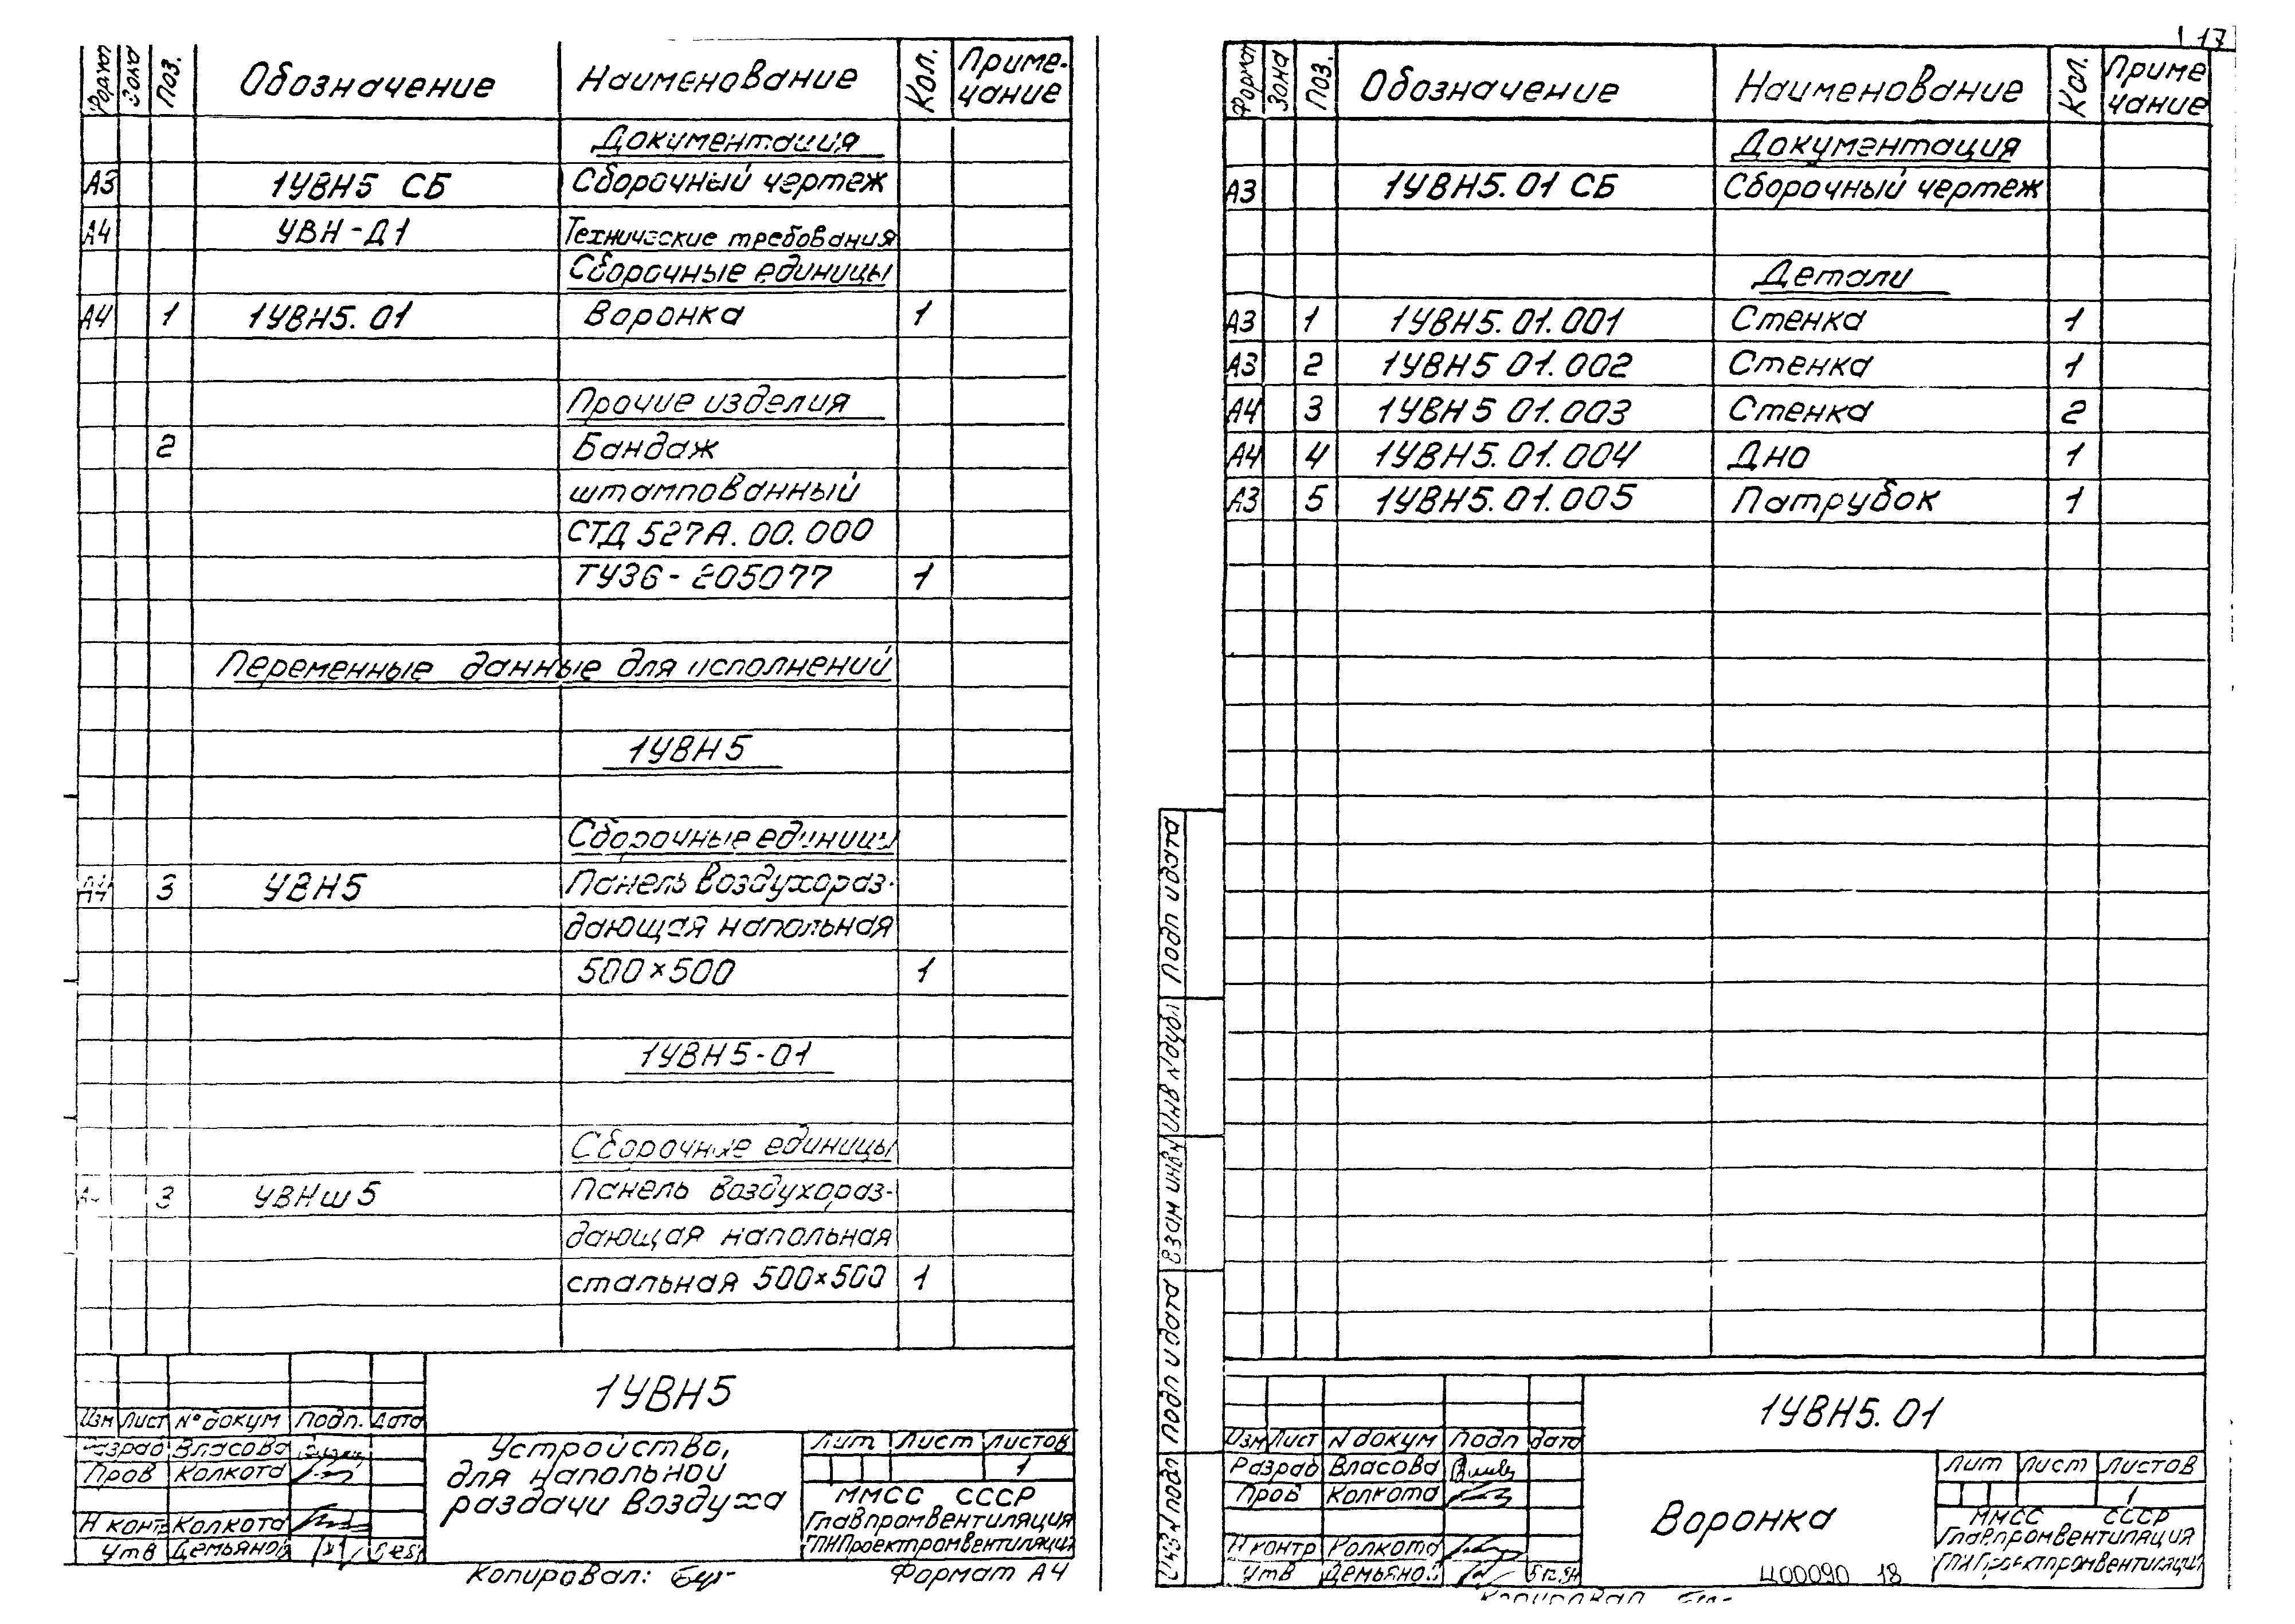 Формат Зона Поз. Обозначение Наименование Кол. Приме-
чание
Документация
А3 1УВН5 СБ Сборочный чертеж
А4 УВН-Д1 Технические требования
Сборочные единицы
А4 1 1УВН5.01 Воронка 1
Прочие изделия
2 Бандаж
штампованный
СТД 527А.00.000
ТУ36-205077 1
Переменные данные для исполнений
1УВН5
Сборочные единицы
А4 3 УВН5 Панель воздухораз-
дающая напольная
500×500 1
1УВН5-01
Сборочные единицы
3 УВНш5 Панель воздухораз-
дающая напольная
стальная 500×500 1
1УВН5
Изм Лист № докум Подп. Дата
Разраб Власова
Пров Колкота
Н контр Колкота
Утв
Устройство,
для напольной
раздачи воздуха
Лит Лист Листов
1
ММСС СССР
Главпромвентиляция
ГПИПроектпромвентиляция
Копировал:
Формат А4
17
Формат Зона Поз. Обозначение Наименование Кол. Приме
чание
Документация
А3 1УВН5.01 СБ Сборочный чертеж
Детали
А3 1 1УВН5.01.001 Стенка 1
А3 2 1УВН5 01.002 Стенка 1
А4 3 1УВН5 01.003 Стенка 2
А4 4 1УВН5.01.004 Дно 1
А3 5 1УВН5.01.005 Патрубок 1
Подп и дата
Инв № дубл
Взам инв №
Подп и дата
Инв № подл
1УВН5.01
Изм Лист N докум Подп дата
Разраб Власова
Пров Колкота
Н контр Колкота
Утв
Воронка
Лит Лист Листов
1
ММСС СССР
Главпромвентиляция
ГПИ Проектпромвентиляция
Ц00090 18
Копировал